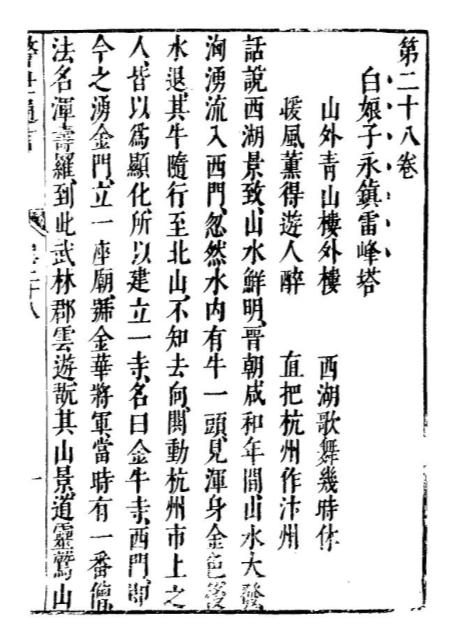 第二十八卷
白娘子永鎮雷峰塔
山外青山樓外樓　西湖歌舞幾時休
煖風薰得遊人醉　直把杭州作汴州
話說西湖景致、山水鮮明、晉朝咸和年間山水大發
洶湧流入西門、忽然水內有牛一頭、見渾身金色、後
水退、其牛隨行至北山、不知去向、鬨動杭州市上之
人、皆以爲顯化、所以建立一寺、名曰金牛寺、西門、即
今之湧金門、立一座廟、號金華將軍、當時有一番僧
法名渾壽羅、到此武林郡雲遊、翫其山景、道靈鷲山
卷二十八
一